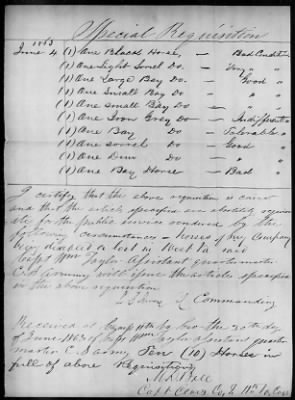 Special Requisition
1863
June 4 (1) One Black Horse, — Bad Condition
(1) One Light Sorel Do. — Very "
(1) One Large Bay Do. — Good "
(1) One Small Bay Do — " "
(1) One small Bay Do — " "
(1) One Iron Grey Do — Indifferent "
(1) One Bay Do. — Tolerable "
(1) One sorrel Do — Good
(1) One Dun Do — " "
(1) One Bay Horse — Bad "
I certify that the above requisition is correct
and that the articles specified are absolutely requisite
for the public service rendered by the
following circumstances Horses of the Company
being disabled & lost in West Va raid
Capt Wm Taylor Assistant quartermaster
C.S. Army will issue the articles specified
in the above requisition
Commanding
Received at Camp 11th Va the 30th day
of June 1863 of Capt Wm Taylor Assistant quarter
master C S army Ten (10) Horses in
full of above Requisition
Ball
Capt Com'g Co. 11th Va Cav